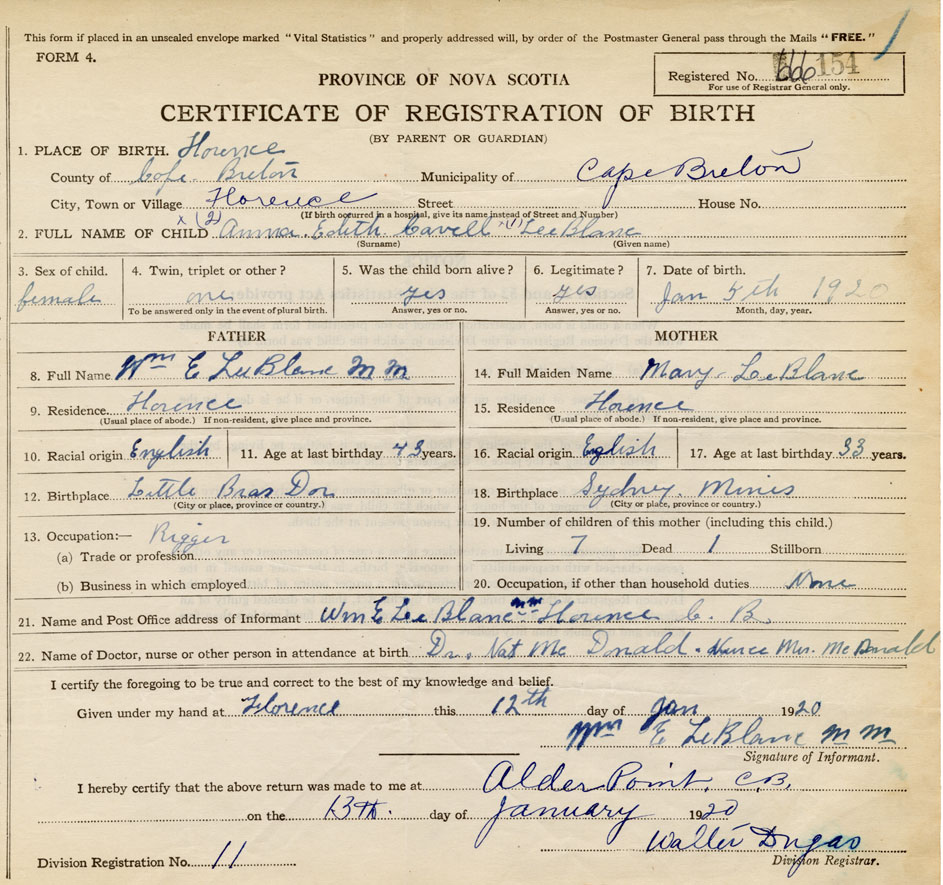 This form if placed in an unsealed envelope marked "Vital Statistics" and properly addressed will, by order of the Postmaster General pass through the Mails "FREE."
FORM 4.
Registered No. 154
For use of Registrar General only.
PROVINCE OF NOVA SCOTIA
CERTIFICATE OF REGISTRATION OF BIRTH
(BY PARENT OR GUARDIAN)
1. PLACE OF BIRTH. Florence
County of Cape Breton Municipality of Cape Breton
City, Town or Village Florence Street House No.
(If birth occurred in a hospital, give its name instead of Street and Number)
2. FULL NAME OF CHILD x (2) Anna Edith Cavell x (1) LeeBlanc
(Surname) (Given name)
3. Sex of child. 4. Twin, triplet or other? 5. Was the child born alive? 6. Legitimate? 7. Date of birth.
female one yes yes Jan 5th 1920
To be answered only in the event of plural birth. Answer, yes or no. Answer, yes or no. Month, day, year.
FATHER MOTHER
8. Full Name Wm E LeeBlanc M M 14. Full Maiden Name Mary LeeBlanc
9. Residence Florence 15. Residence Florence
(Usual place of abode.) If non-resident, give place and province. (Usual place of abode.) If non-resident, give place and province.
10. Racial origin English 11. Age at last birthday 43 years. 16. Racial origin English 17. Age at last birthday 33 years.
12. Birthplace Little Bras Dor 18. Birthplace Sydney Mines
(City or place, province or country.) (City or place, province or country.)
13. Occupation:— Rigger 19. Number of children of this mother (including this child.)
(a) Trade or profession Living 7 Dead 1 Stillborn
(b) Business in which employed 20. Occupation, if other than household duties. None
21. Name and Post Office address of Informant Wm E LeeBlanc MM Florence C. B.
22. Name of Doctor, nurse or other person in attendance at birth Dr. Nat Mc Donald. Nurce Mrs. McDonald
I certify the foregoing to be true and correct to the best of my knowledge and belief.
Given under my hand at Florence this 12th day of Jan 1920
Wm E LeBlanc M M
Signature of Informant.
I hereby certify that the above return was made to me at Alder Point, C.B.
on the 13th. day of January 1920
Walter Dugas
Division Registration No. 11 Division Registrar.